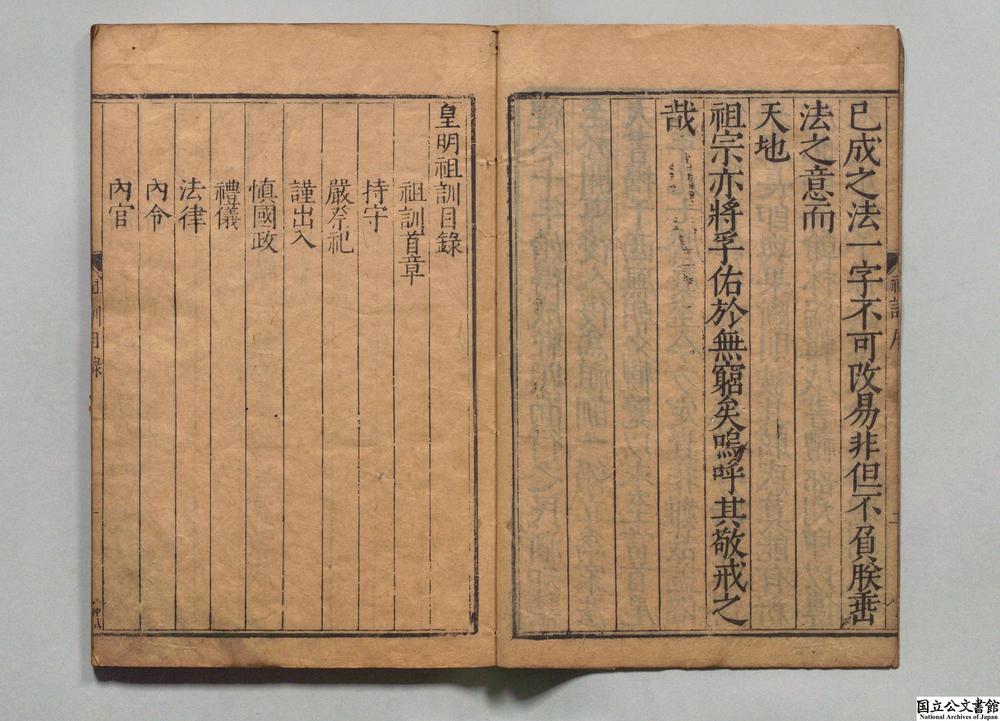 已成之法一字不可改易非但不負朕垂
法之意而
天地
祖宗亦將孚佑於無窮矣嗚呼其敬戒之
哉
祖訓序
皇明祖訓目錄
祖訓首章
持守
嚴祭祀
謹出入
慎國政
禮儀
法律
內令
內官
祖訓目錄
国立公文書館
National Archives of Japan